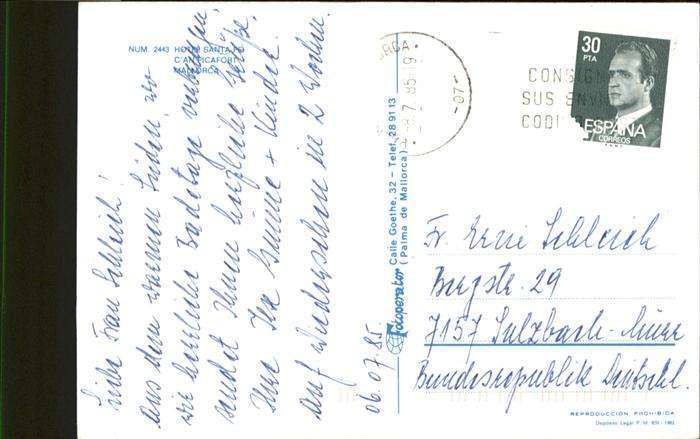 NUM. 2443 HOTEL SANTA FE
C'AN PICAFORT
MALLORCA
Liebe Frau Schleich!
aus dem warmen Süden, wo
wir herrliche Badetage verbringen,
sendet Ihnen herzliche Grüße,
Ihre Ilse + Kinder.
auf Wiedersehen in 2 Wochen
06.07.85
Fotoperator Calle Goethe, 32 – Telef. 28 91 13
(Palma de Mallorca)
7 85 19
-07-
CONSIGNE
SUS ENVI
CODI
30
PTA
ESPAÑA
CORREOS
Fr. Erni Schleich
Bergstr. 29
7157 Sulzbach-Murr
Bundesrepublik Deutschl.
REPRODUCCION PROHIBIDA
Depósito Legal P. M. 831 - 1982